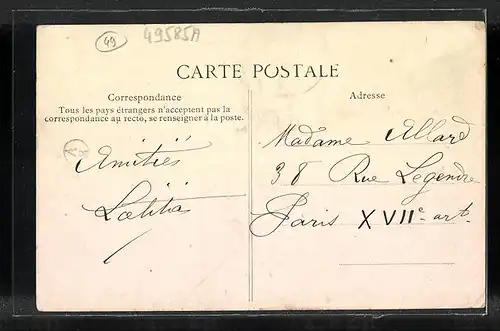 49
49585A
CARTE POSTALE
Correspondance
Tous les pays étrangers n'acceptent pas la
correspondance au recto, se renseigner à la poste.
Amitiés
Lætitia
Adresse
Madame Allard
38 Rue Legendre
Paris XVIIe art.